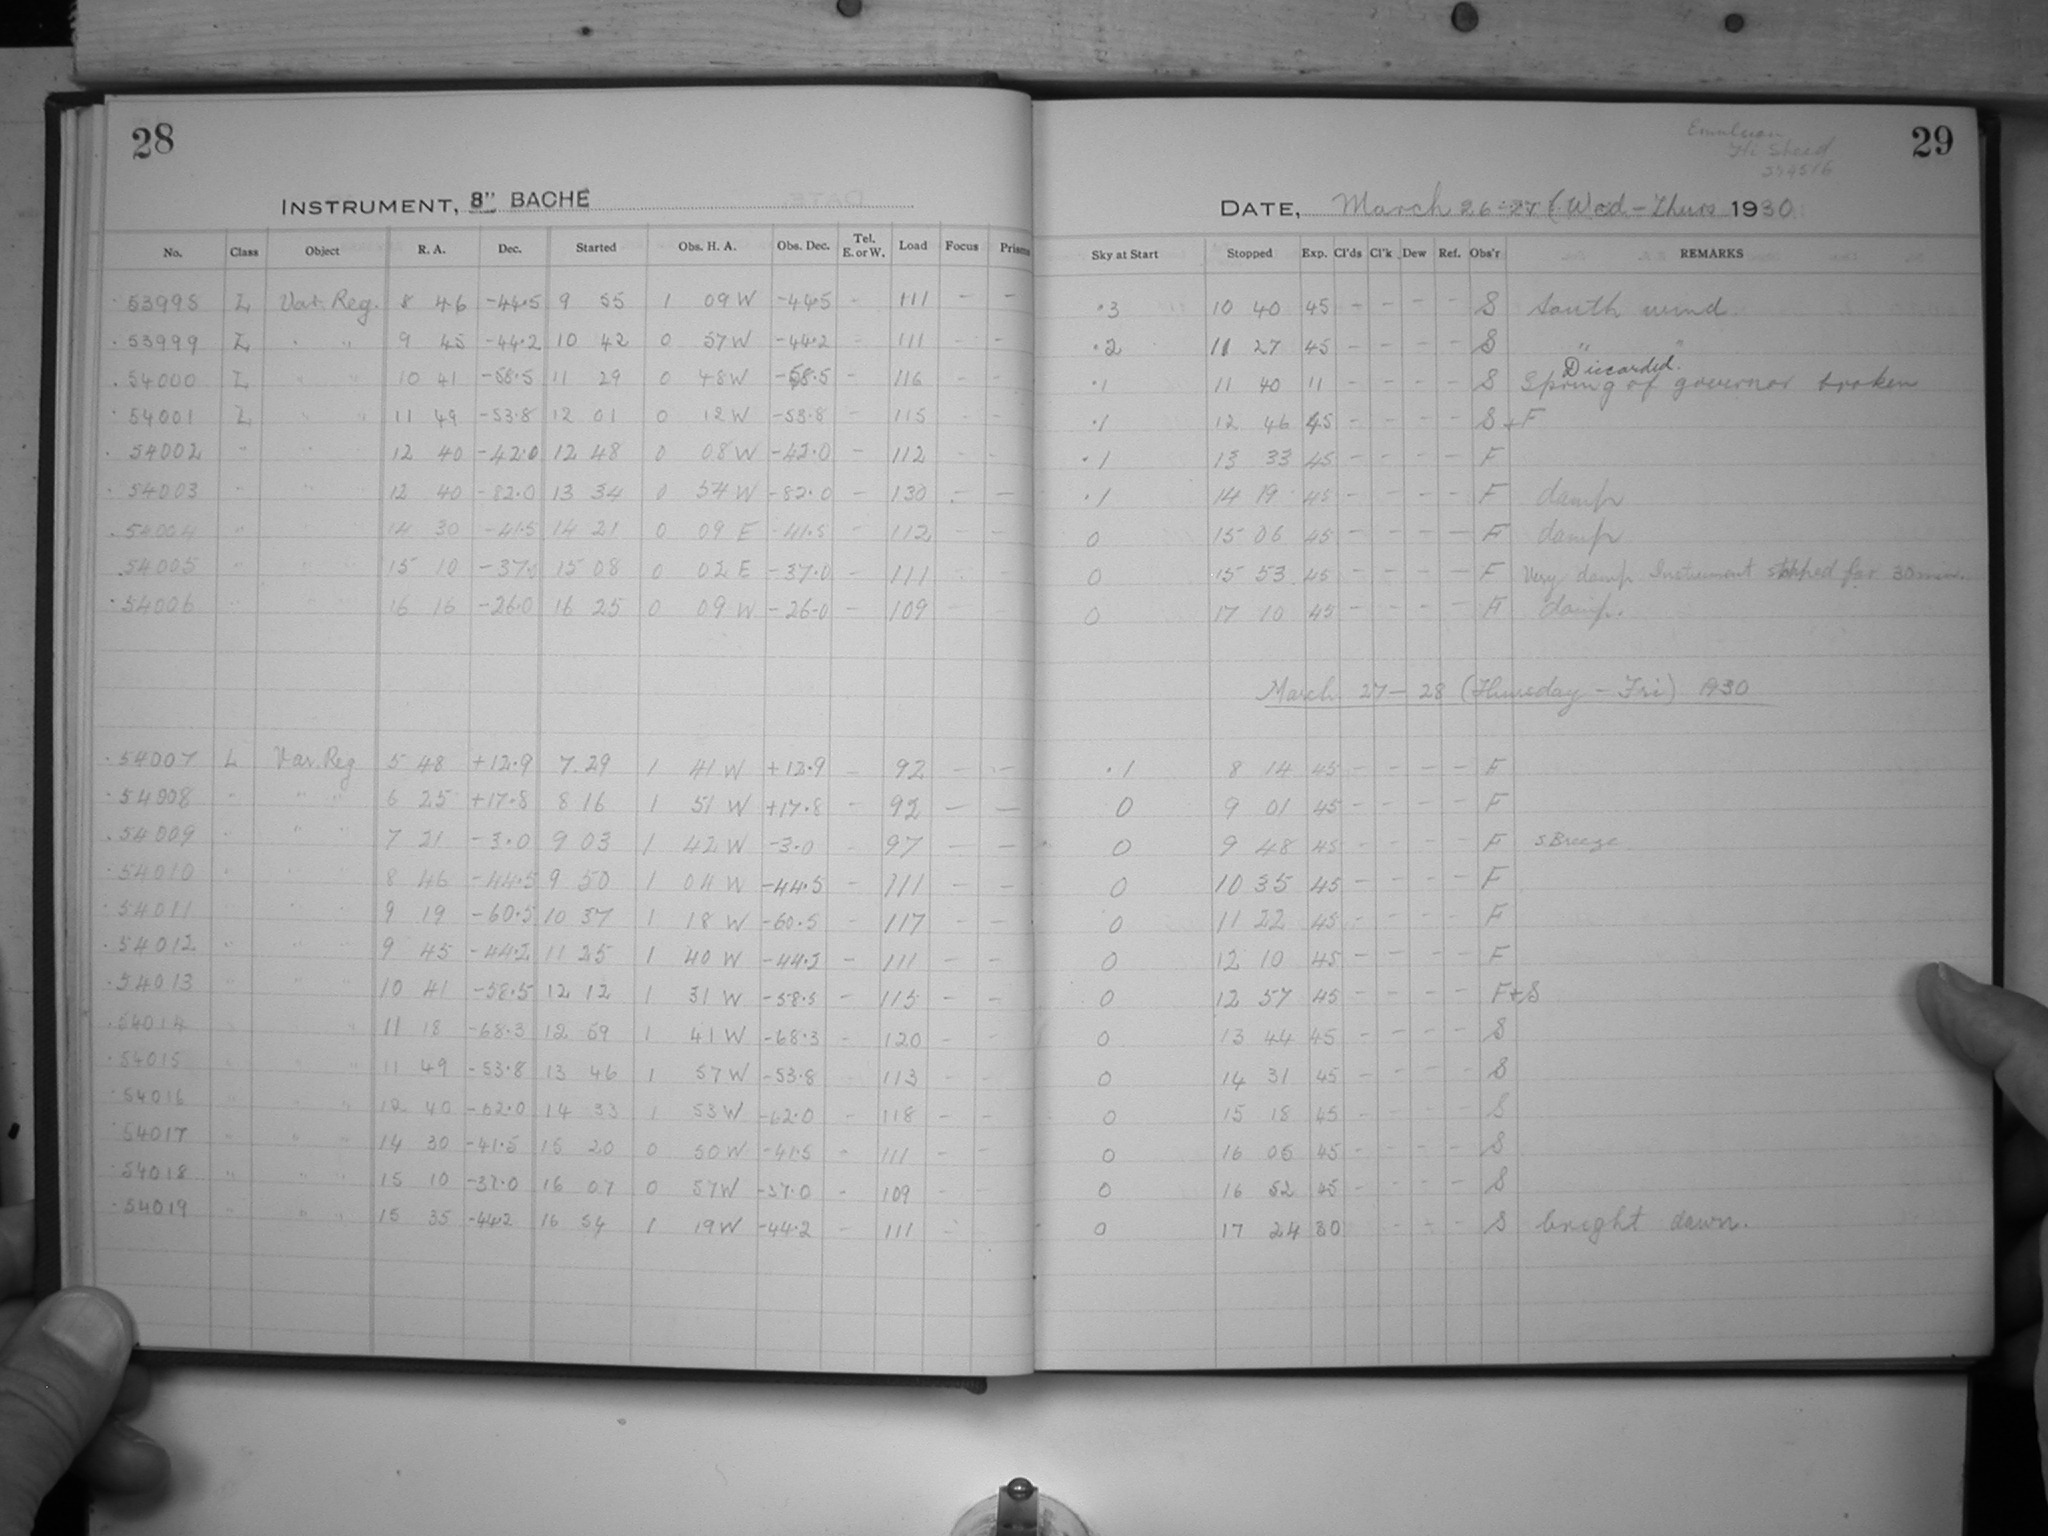 28
INSTRUMENT, 8" BACHE
No. Class Object R. A. Dec. Started Obs. H. A. Obs. Dec. Tel. E. or W. Load Focus Prisms
53998 L Var. Reg. 8 46 -44.5 9 55 1 09 W -44.5 - 111 - -
53999 L " " 9 45 -44.2 10 42 0 57 W -44.2 - 111 - -
54000 L " " 10 41 -58.5 11 29 0 48 W -58.5 - 116 - -
54001 L " " 11 49 -53.8 12 01 0 12 W -53.8 - 115 - -
54002 " " " 12 40 -42.0 12 48 0 08 W -42.0 - 112 - -
54003 " " " 12 40 -82.0 13 34 0 54 W -82.0 - 130 - -
54004 " " " 14 30 -41.5 14 21 0 09 E -41.5 - 112 - -
54005 " " " 15 10 -37.0 15 08 0 02 E -37.0 - 111 - -
54006 " " " 16 16 -26.0 16 25 0 09 W -26.0 - 109 - -
54007 L Var. Reg 5 48 +12.9 7 29 1 41 W +12.9 - 92 - -
54008 " " " 6 25 +17.8 8 16 1 51 W +17.8 - 92 - -
54009 " " " 7 21 -3.0 9 03 1 42 W -3.0 - 97 - -
54010 " " " 8 46 -44.5 9 50 1 04 W -44.5 - 111 - -
54011 " " " 9 19 -60.5 10 37 1 18 W -60.5 - 117 - -
54012 " " " 9 45 -44.2 11 25 1 40 W -44.2 - 111 - -
54013 " " " 10 41 -58.5 12 12 1 31 W -58.5 - 115 - -
54014 " " " 11 18 -68.3 12 59 1 41 W -68.3 - 120 - -
54015 " " " 11 49 -53.8 13 46 1 57 W -53.8 - 113 - -
54016 " " " 12 40 -62.0 14 33 1 53 W -62.0 - 118 - -
54017 " " " 14 30 -41.5 15 20 0 50 W -41.5 - 111 - -
54018 " " " 15 10 -37.0 16 07 0 57 W -37.0 - 109 - -
54019 " " " 15 35 -44.2 16 54 1 19 W -44.2 - 111 - -
29
Emulsion
Hi Speed
DATE, March 26-27 (Wed - Thurs 1930
Sky at Start Stopped Exp. Cl'ds Cl'k Dew Ref. Obs'r REMARKS
.3 10 40 45 - - - - S South wind
.2 11 27 45 - - - - S " "
Discarded.
.1 11 40 11 - - - - S Spring of governor broken
.1 12 46 45 - - - - S + F
.1 13 33 45 - - - - F
.1 14 19 45 - - - - F damp
0 15 06 45 - - - - F damp
0 15 53 45 - - - - F Very damp Instrument stopped for 30 min.
0 17 10 45 - - - - F damp.
March 27 - 28 (Thursday - Fri) 1930
.1 8 14 45 - - - - F
0 9 01 45 - - - - F
0 9 48 45 - - - - F S Breeze
0 10 35 45 - - - - F
0 11 22 45 - - - - F
0 12 10 45 - - - - F
0 12 57 45 - - - - F + S
0 13 44 45 - - - - S
0 14 31 45 - - - - S
0 15 18 45 - - - - S
0 16 05 45 - - - - S
0 16 52 45 - - - - S
0 17 24 30 - - - S bright dawn.